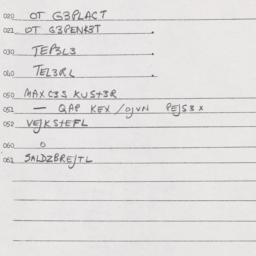 020 OT G3PLACT
021 OT G3PENK3T .
030 TEP3L3 .
040 TEL3RL .
050 MAXC3S KUST3R
051 — QAP KEX/OJVN PEJS3X
052 VEJKSTEFL
060 O
061 SALDZBREJTL